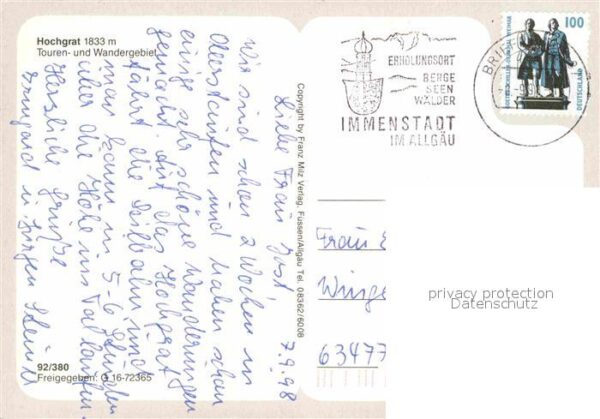 Hochgrat 1833 m
Touren- und Wandergebiet
7.9.98
Liebe Frau Jost,
Wir sind schon 2 Wochen in
Oberstaufen und haben schon
einige sehr schöne Wanderungen
gemacht. Auf das Hochgrat
fährt die Seilbahn und
man kann in 5-6 Stunden
über die Höhe ins Tal laufen.
Herzliche Grüße
Irmgard u.
92/380
Freigegeben: G 16-72365
Copyright by Franz Milz Verlag, Füssen/Allgäu Tel. 08362/6008
ERHOLUNGSORT
BERGE
SEEN
WÄLDER
IMMENSTADT
IM ALLGÄU
100
DEUTSCHLAND
Frau
Winge
63477
privacy protection
Datenschutz